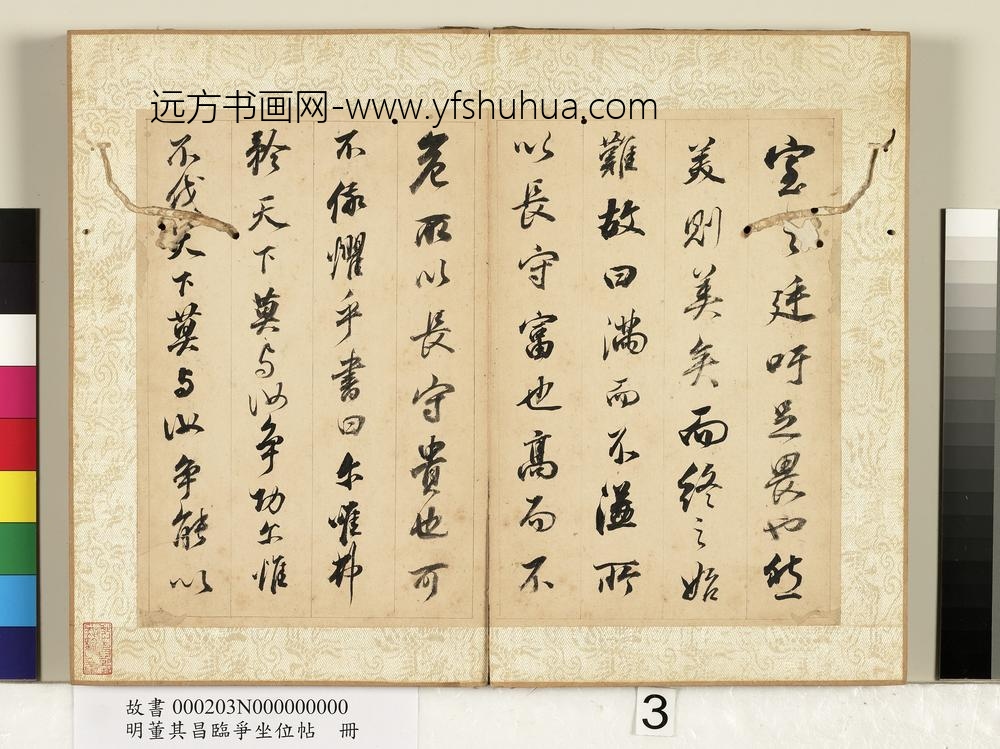 远方书画网-www.yfshuhua.com
室之廷吁足畏也然
美則美矣而終之始
難故曰滿而不溢所
以長守富也高而不
危所以長守貴也可
不儆懼乎書曰尔唯弗
矜天下莫与汝争功尔惟
不伐天下莫与汝争能以
故書 000203N000000000
明董其昌臨爭坐位帖 冊
3